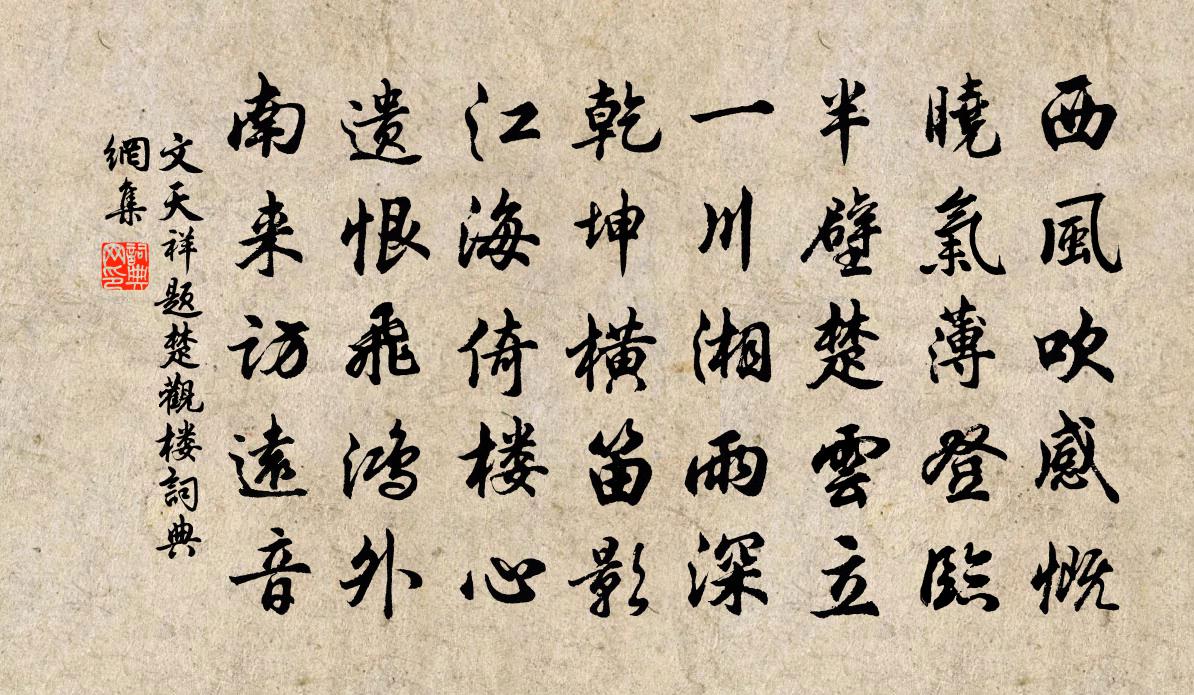 西風吹感慨
曉氣薄登臨
半壁楚雲立
一川湘雨深
乾坤橫笛影
江海倚楼心
遗恨飛鸿外
南来访遠音
文天祥题楚觀楼詞典
網集
詞典
网印